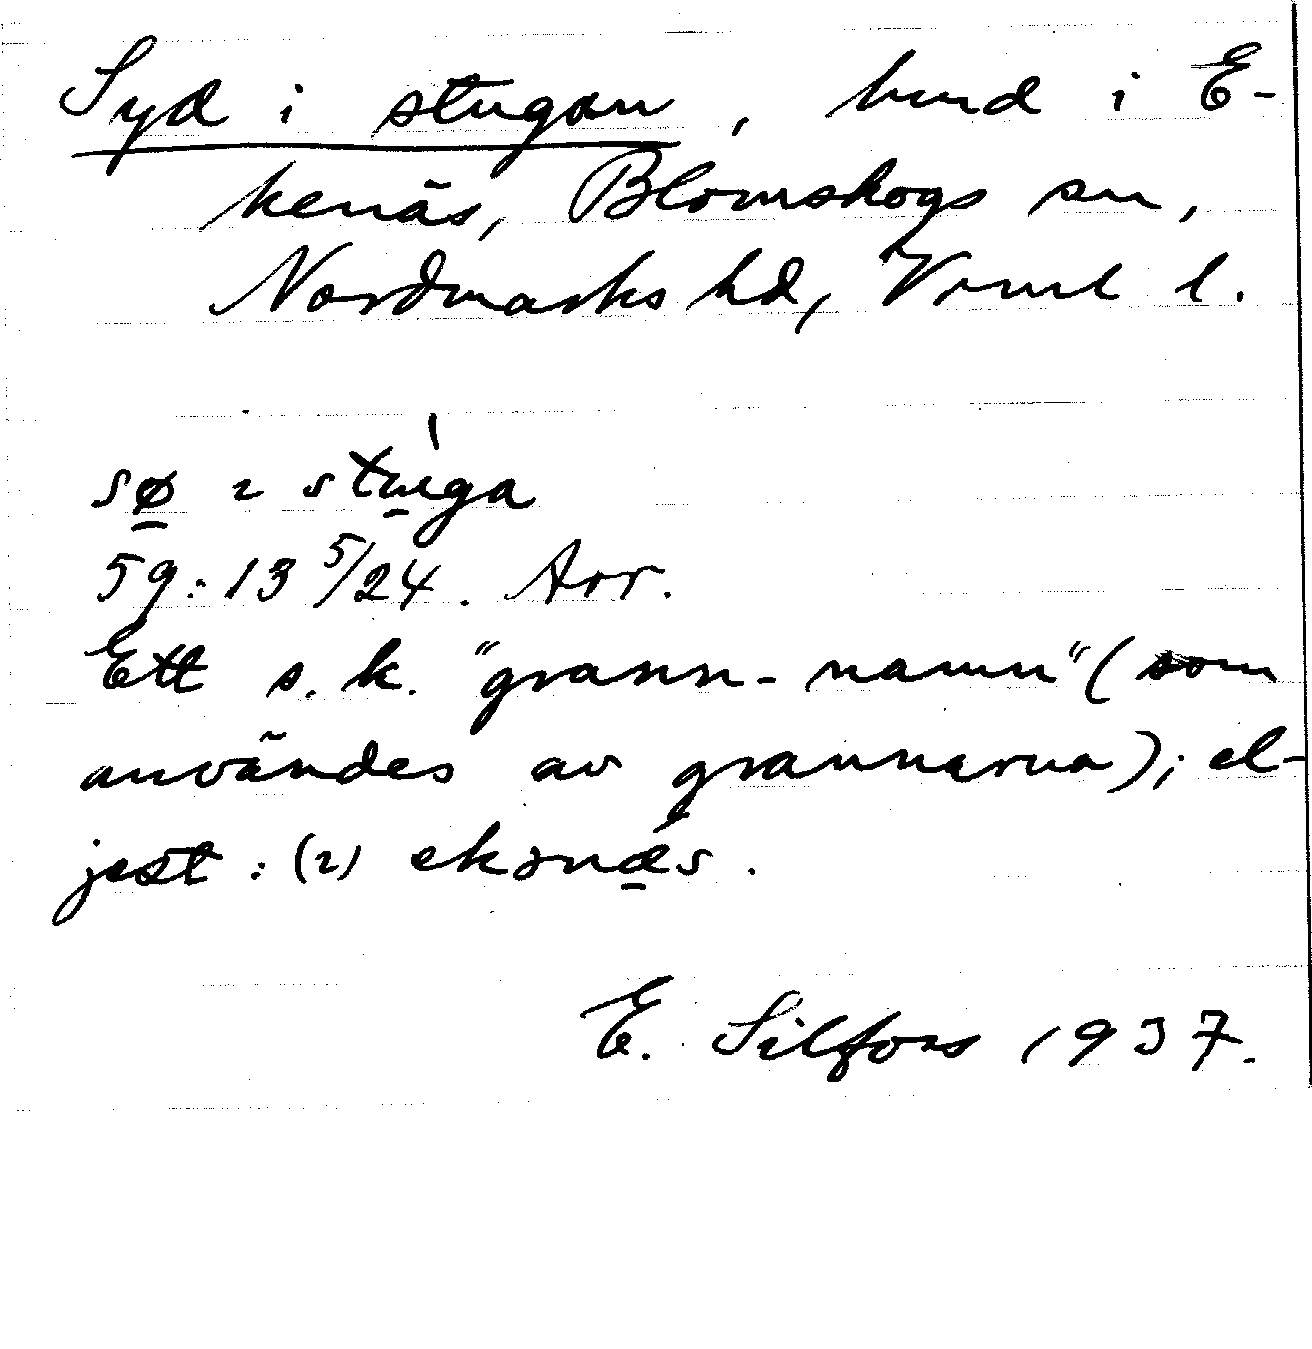 Syd i stugan, hmd i E-
kenäs, Blomskogs sn,
Nordmarks hd, Vrml l.
sø ı stuga
59:13 5/24. Arr.
Ett s.k. "grann-namn" (som
användes av grannarna); el-
jest: (2) ekənæs.
E. Silfors 1937.